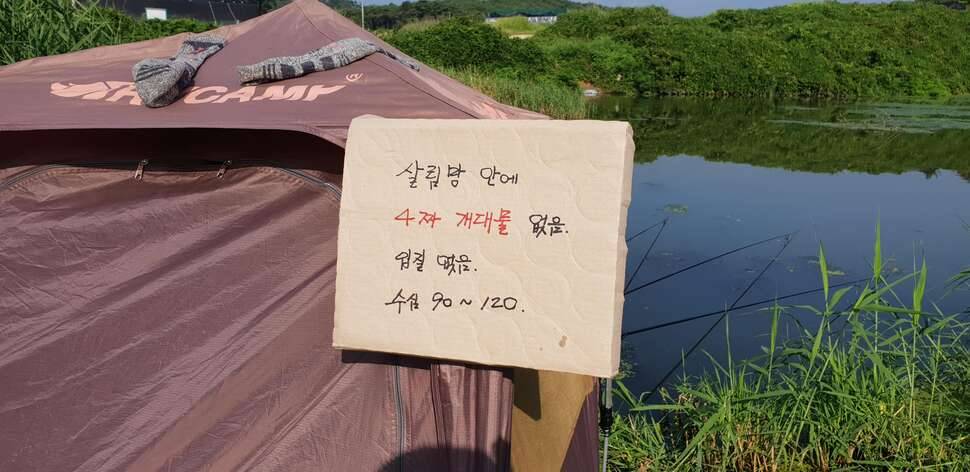 CAMP
살림방 안에
4짜 개대물 없음.
입질 없음.
수심 90~120.